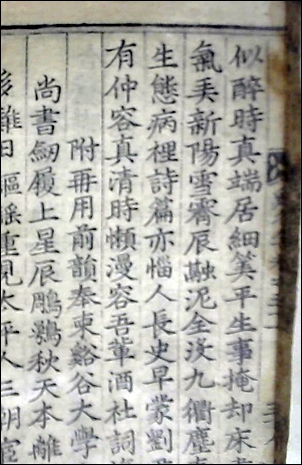 似醉時真端居細筭平生事掩却床
氣美新陽雪霽辰融泥全沒九衢塵
生態病裡詩篇亦惱人長史早蒙劉
有仲容真清時懶漫容吾輩酒社詞
附再用前韻奉柬谿谷大學
尚書劒履上星辰鵰鶚秋天本離
謳謠重見太平人三朝宦